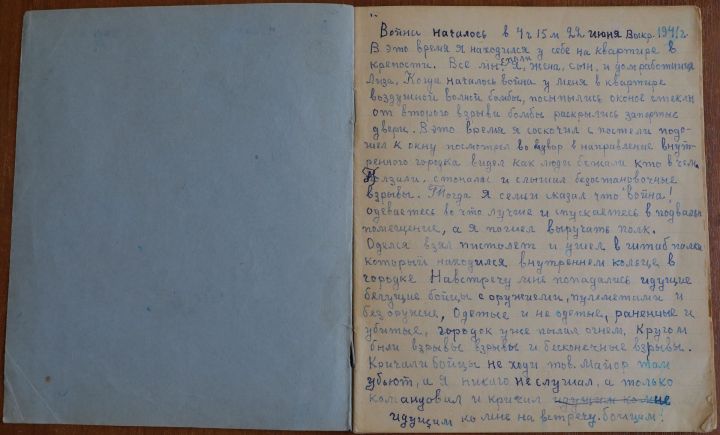 Война началось в 4 ч 15 м 22 июня Выкр. 1941 г.
В это время я находился у себе на квартире в
крепости. Все мы спали я, жена, сын, и домработница
Лиза. Когда началось война у меня в квартире
воздушной волной бомбы, посыпились оконое стекли
от второго взрыви бомбы раскрылись запертые
двери. В это время я соскочил с постели подо-
шел к окну посмотрел во двор в направление внут-
ренного городка видел как люди бежали кто в чем.
Ползили, стонали и слышал безостановочные
взрывы. Тогда я семьи сказал что "война!
одевайтесь во что лучше и спускаетесь в подвальн
помещение, а я пошел выручать полк.
Оделся взял пистолет и ушел в штаб полка
который находился внутреннем колеце в
городке Навстречу мне попадались идущие
бегущие бойцы с оружиеми, пулеметами и
без оружие, Одетые и не одетые, раненные и
убитые, городок уже пылал огнем, Кругом
были взрывы взрывы и бесконечные взрывы.
Кричали бойцы не ходи тов. Майор там
убьют, а я никаго не слушал, а только
командовал и кричал идущем ко мне
идущим ко мне на встречу бойцим!